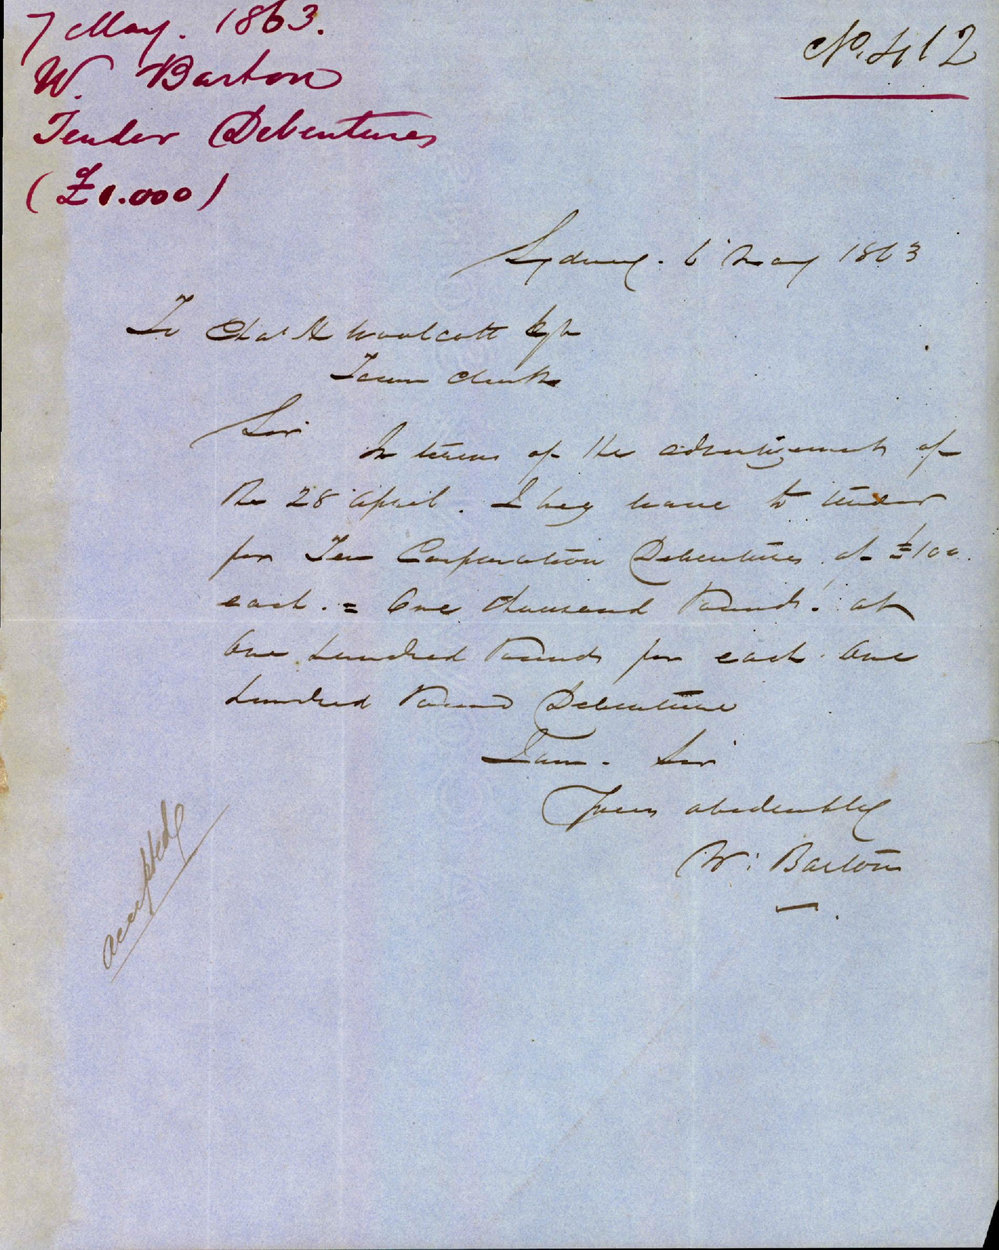 7 May. 1863.
W. Barton
Tender Debentures
(£1.000)
No. 412
Sydney. 6 May 1863
To Chas H Woolcott Esq
Town Clerk
Sir In terms of the advertisement of
the 28 April. I beg leave to tender
for Ten Corporation Debentures at £100.
each. = One thousand Pounds. at
One hundred Pounds for each One
hundred Pound Debenture
I am. Sir
Yours obediently
W. Barton
accepted